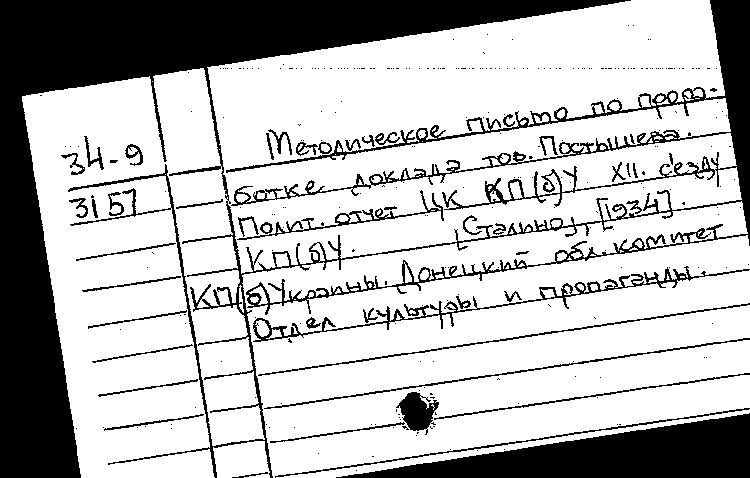 34-9
3157
Методическое письмо по прора-
ботке доклада тов. Постышева.
Полит. отчет ЦК КП(б)У XII. с'езду
КП(б)У. [Сталино], [1934].
КП(б)Украины. Донецкий обл. комитет
Отдел культуры и пропаганды.